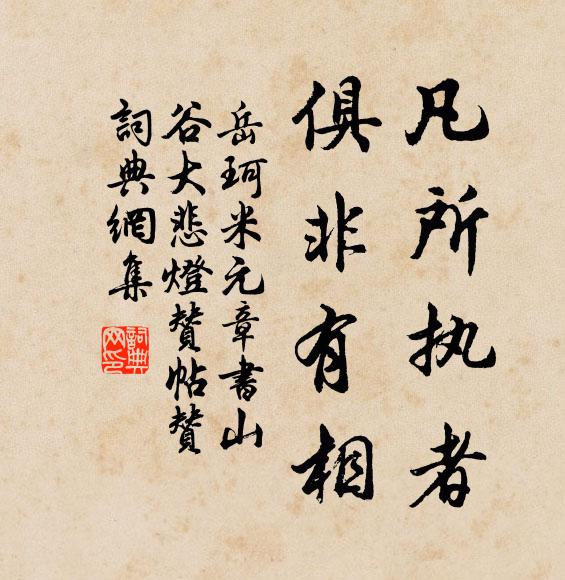 凡所执者
俱非有相
岳珂米元章書山
谷大悲燈赞帖赞
詞典網集
詞典网印